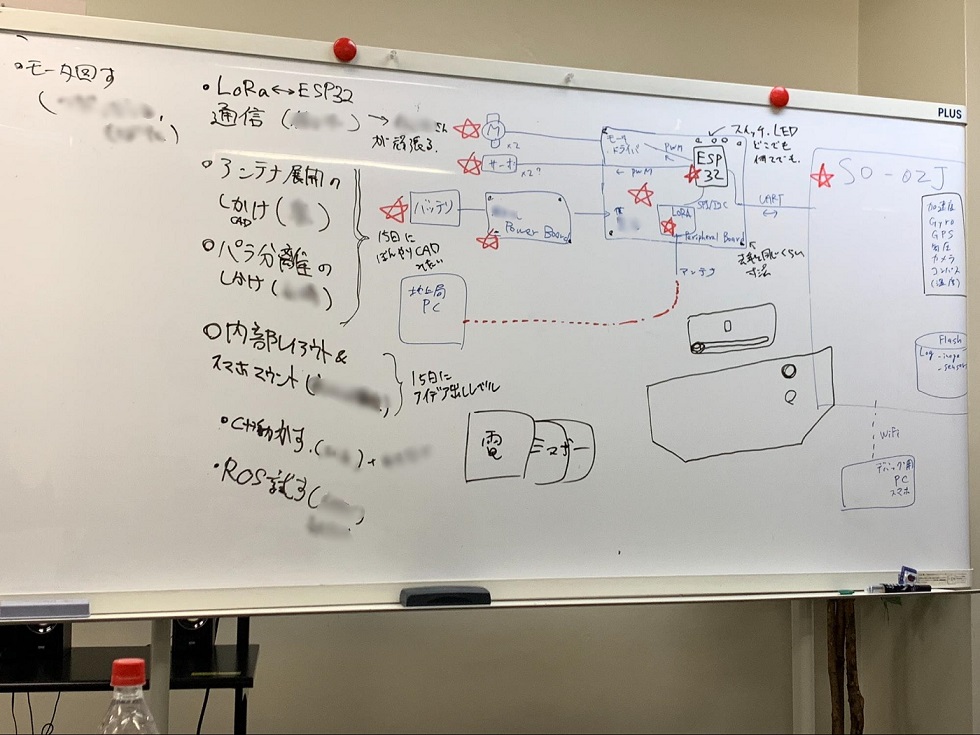 ・モータ図す
・LoRa↔ESP32
通信( ) → さん
が頑張る.
・アンテナ展開の
しかけ( )
CAD
・パラ分離の
しかけ( )
15日に
ぼんやりCAD
○内部レイアウト&
スマホマウント(
15日に
アイデア出しレベル
・C++動かす.( )+
・ROS試す(
M
x2
サーボ
x2?
バッテリ
Power Board
モータ
ドライバ
PWM
← PWM
ESP
32
LoRa
SPI/I2C
Peripheral Board
スイッチ、LED
どこでも
何でも.
UART
↔
アンテナ
寸法
地上局
PC
SO-02J
加速度
Gyro
GPS
気圧
カメラ
コンパス
(温度)
Flash
Log
WiFi
デバッグ用
PC
スマホ
電
PLUS